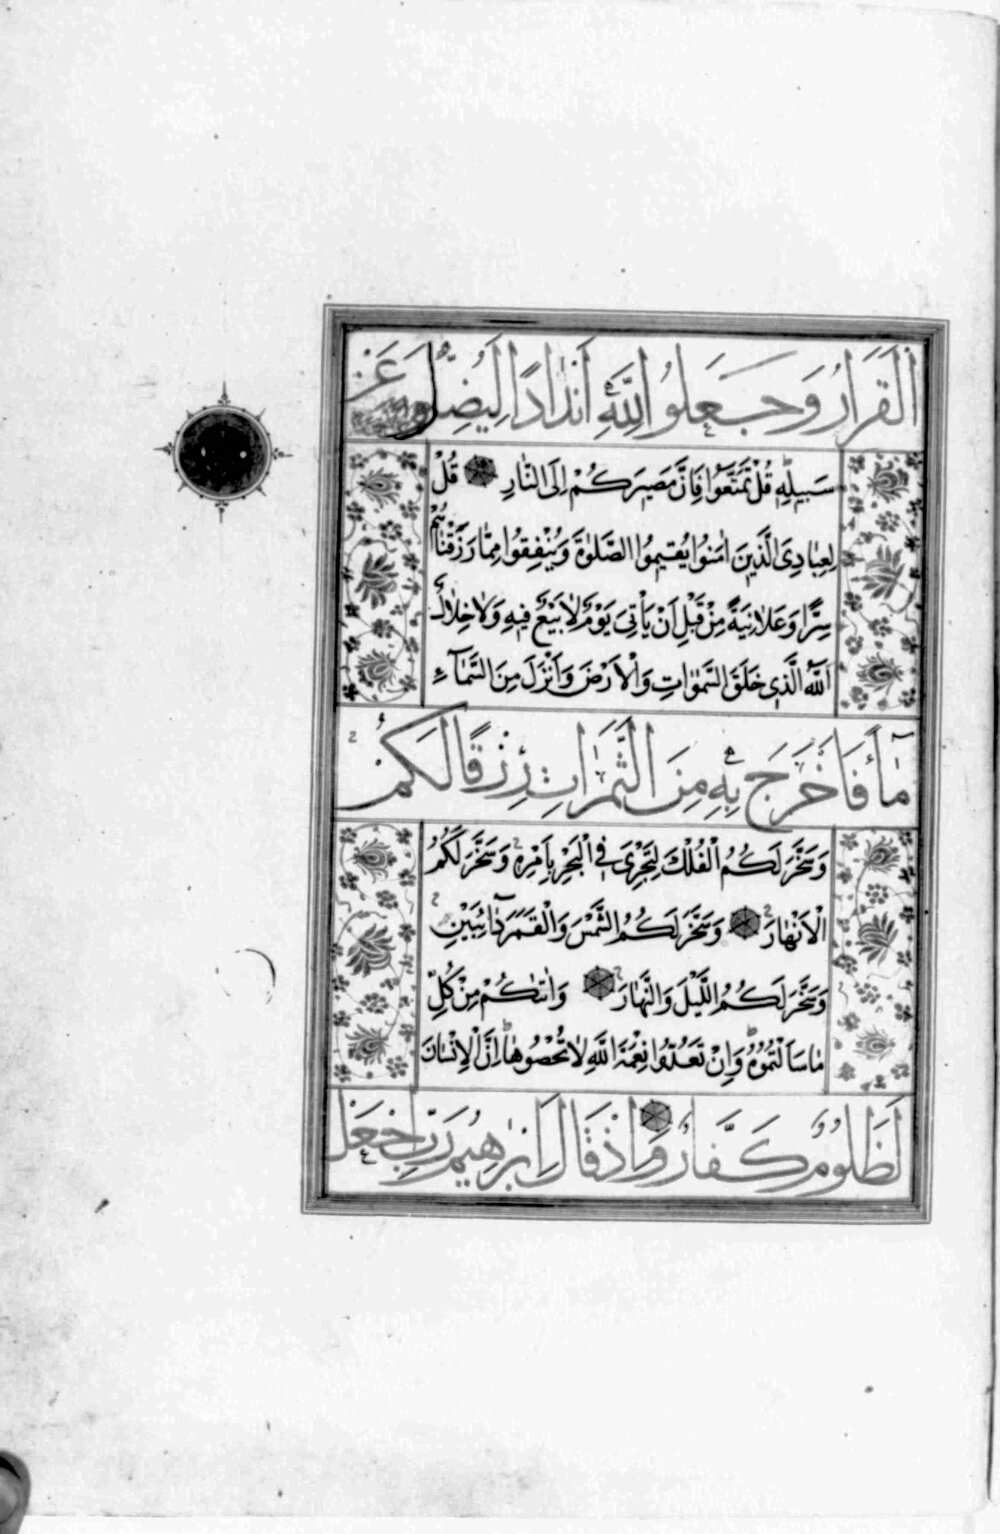 الْقَرَارُ وَجَعَلُوا لِلَّهِ أَنْدَادًا لِيُضِلُّوا عَنْ
سَبِيلِهِ قُلْ تَمَتَّعُوا فَإِنَّ مَصِيرَكُمْ إِلَى النَّارِ قُلْ
لِعِبَادِيَ الَّذِينَ اٰمَنُوا يُقِيمُوا الصَّلٰوةَ وَيُنْفِقُوا مِمَّا رَزَقْنَاهُمْ
سِرًّا وَعَلَانِيَةً مِنْ قَبْلِ أَنْ يَأْتِيَ يَوْمٌ لَا بَيْعٌ فِيهِ وَلَا خِلَالٌ
اَللّٰهُ الَّذِي خَلَقَ السَّمٰوَاتِ وَالْأَرْضَ وَأَنْزَلَ مِنَ السَّمَآءِ
مَآءً فَأَخْرَجَ بِهِ مِنَ الثَّمَرَاتِ رِزْقًا لَكُمْ
وَسَخَّرَ لَكُمُ الْفُلْكَ لِتَجْرِيَ فِي الْبَحْرِ بِأَمْرِهِ وَسَخَّرَ لَكُمُ
الْأَنْهَارَ وَسَخَّرَ لَكُمُ الشَّمْسَ وَالْقَمَرَ دَآئِبَيْنِ
وَسَخَّرَ لَكُمُ اللَّيْلَ وَالنَّهَارَ وَاٰتٰىكُمْ مِنْ كُلِّ
مَا سَأَلْتُمُوهُ وَإِنْ تَعُدُّوا نِعْمَةَ اللّٰهِ لَا تُحْصُوهَا إِنَّ الْإِنْسَانَ
لَظَلُومٌ كَفَّارٌ وَإِذْ قَالَ إِبْرٰهِيمُ رَبِّ اجْعَلْ